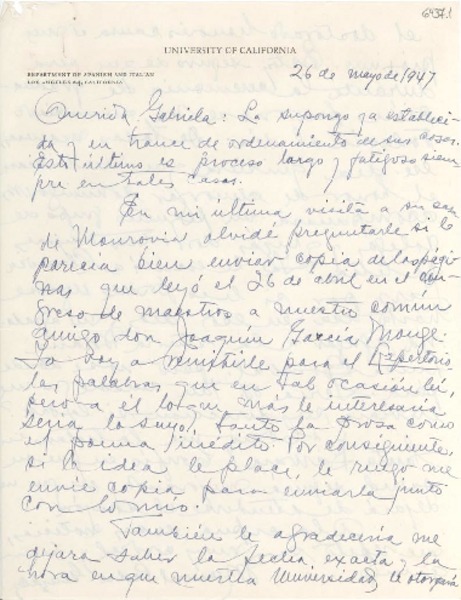 6437.1
UNIVERSITY OF CALIFORNIA
DEPARTMENT OF SPANISH AND ITALIAN
LOS ANGELES 24, CALIFORNIA
26 de mayo de 1947
Querida Gabriela: La supongo ya estableci-
da y en trance de ordenamiento de sus cosas.
Esto último es proceso largo y fatigoso siem-
pre en tales casos.
En mi última visita a su casa
de Monrovia olvidé preguntarle si le
parecía bien enviar copia de las pági-
nas que leyó el 26 de abril en el con-
greso de maestros a nuestro común
amigo don Joaquín García Monge.
Yo voy a remitirle para el Repertorio
las palabras que en tal ocasión leí,
pero a él lo que más le interesaría
sería lo suyo, tanto la prosa como
el poema inédito. Por consiguiente,
si la idea le place, le ruego me
envíe copia para enviarla junto
con lo mío.
También le agradecería me
dejara saber la fecha exacta y la
hora en que nuestra Universidad le otorgará